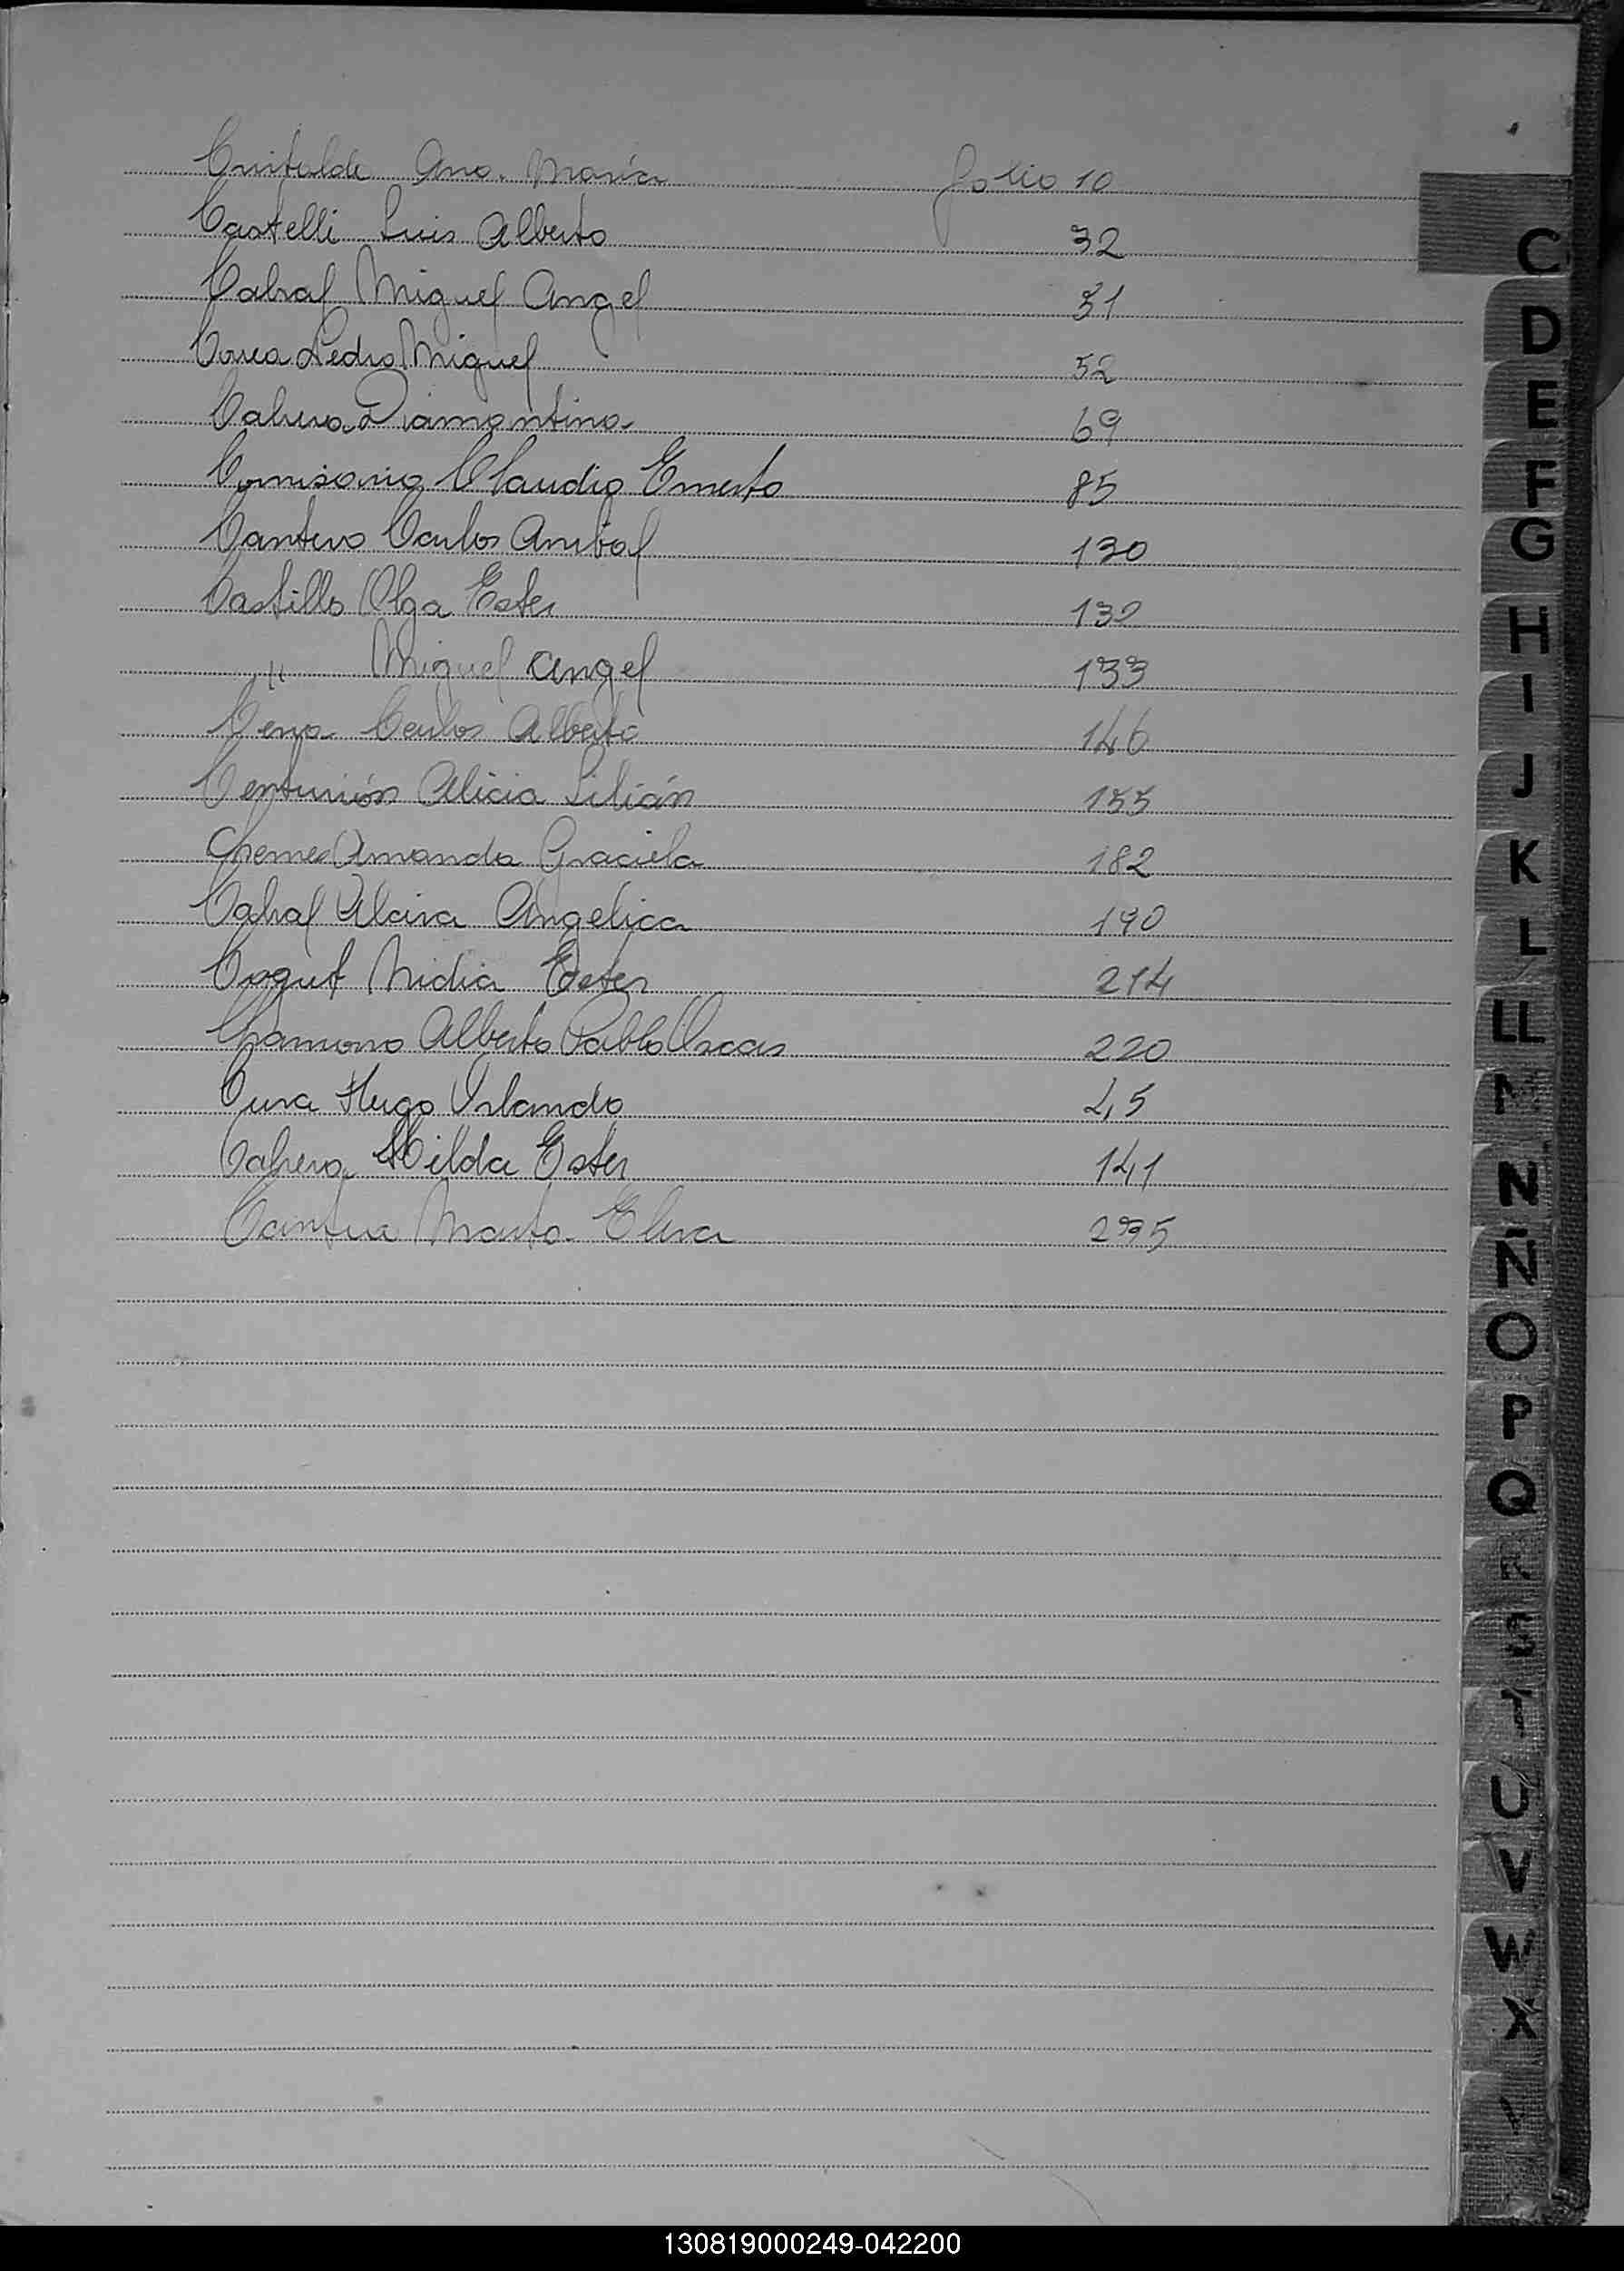 Cristaldo Ana María folio 10
Castelli Luis Alberto 32
Cabral Miguel Angel 51
Correa Pedro Miguel 52
Cabrera Diamantina 69
Comisario Claudio Ernesto 85
Cantero Carlos Anibal 130
Castillo Olga Ester 132
" Miguel Angel 133
Cena Carlos Alberto 146
Centurión Alicia Lilián 155
Chemes Amanda Graciela 182
Cabral Alcira Angelica 190
Cogut Nidia Ester 214
Chamorro Alberto Pablo Oscar 220
Cura Hugo Orlando 25
Cabrera Hilda Ester 141
Marta Elena 295
C
D
E
F
G
H
I
J
K
L
LL
M
N
Ñ
O
P
Q
R
S
T
U
V
W
X
130819000249-042200